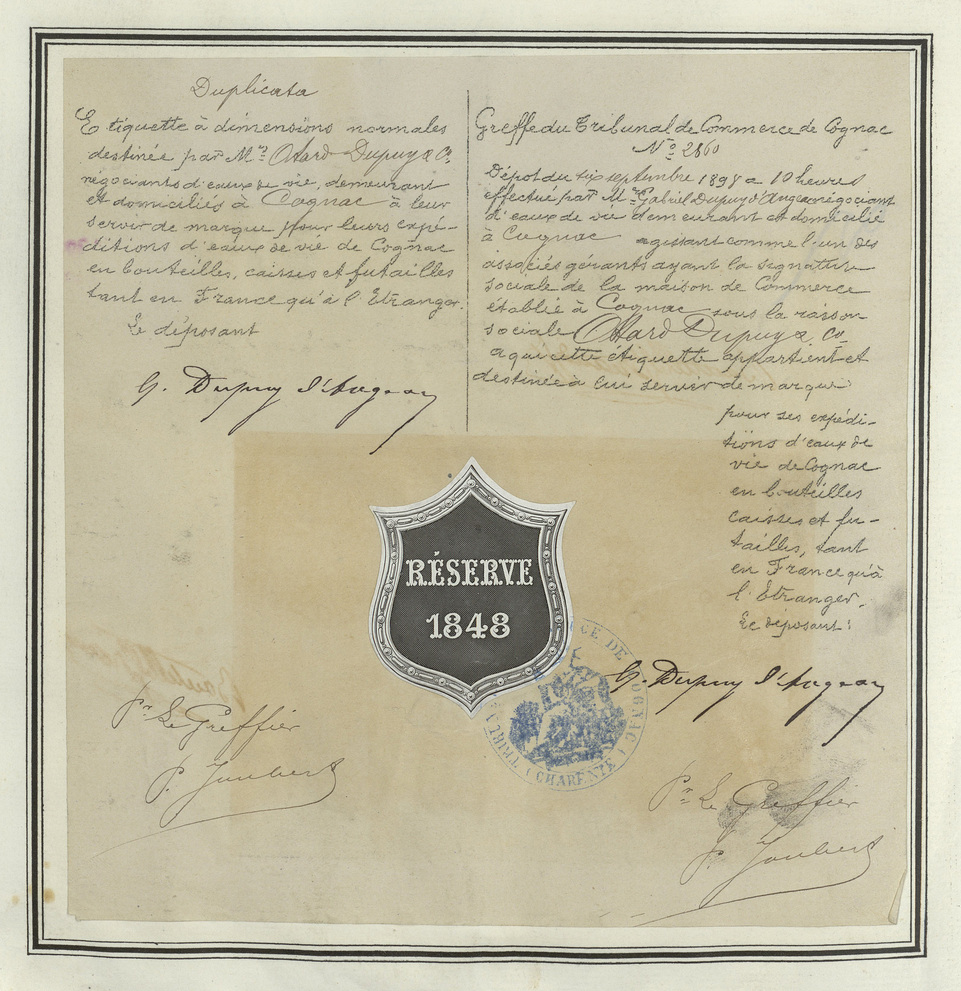 Duplicata
Etiquette à dimensions normales
destinée par Mrs Otard Dupuy & Co
négociants d'eaux de vie, demeurant
et domiciliés à Cognac à leur
servir de marque pour leurs expé-
ditions d'eaux de vie de Cognac
en bouteilles, caisses et futailles
tant en France qu'à l'Etranger.
Le déposant
G. Dupuy d'Angeac
Greffe du Tribunal de Commerce de Cognac
No 2860
Dépôt du six septembre 1898 a 10 heures
effectué par Mr Gabriel Dupuy d'Angeac négociant
d'eaux de vie demeurant et domicilié
à Cognac agissant comme l'un des
associés gérants ayant la signature
sociale de la maison de Commerce
établie à Cognac sous la raison
sociale Otard Dupuy & Co
a qui cette étiquette appartient et
destinée à lui servir de marque
pour ses expédi-
tions d'eaux de
vie de Cognac
en bouteilles
caisses et fu-
tailles, tant
en France qu'à
l'Etranger.
Le déposant:
G. Dupuy d'Angeac
RÉSERVE
1848
TRIBUNAL CE DE COGNAC (CHARENTE)
Pr Le Greffier
P. Joubert
Pr Le Greffier
P. Joubert